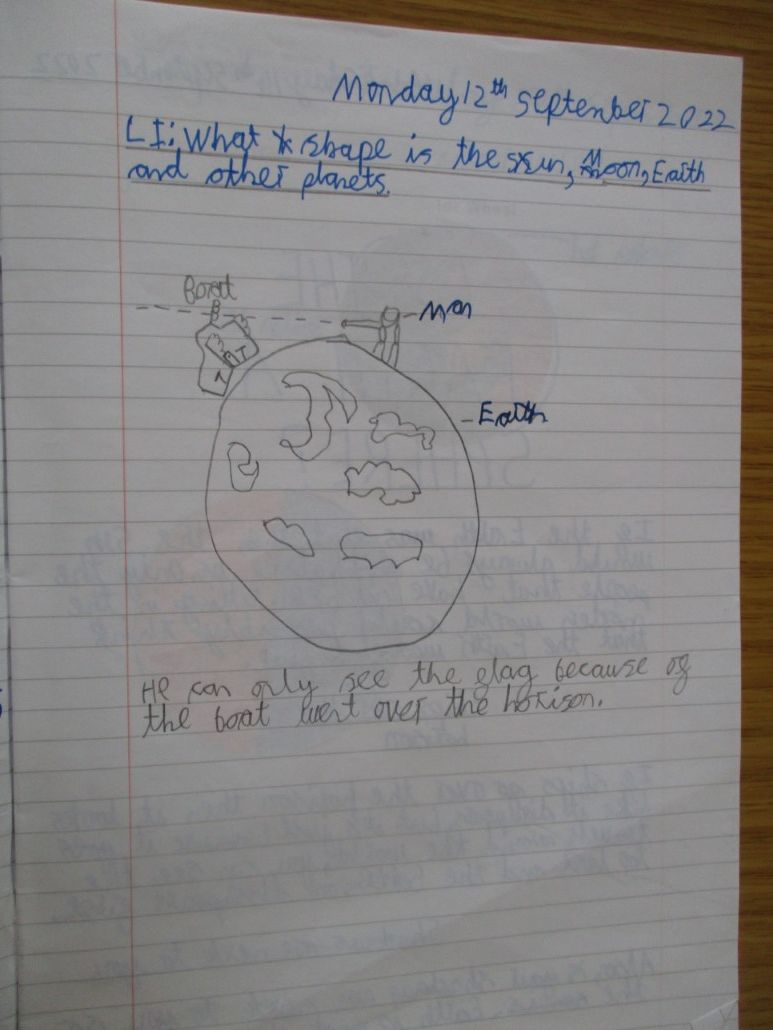 Monday 12th september 2022
LI: What shape is the sun, Moon, Earth
and other planets.
Boat
Man
Earth
He can only see the flag because of
the boat went over the horison.